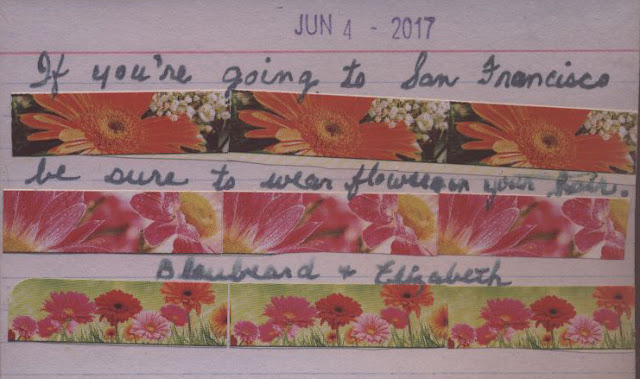 JUN 4 - 2017
If you're going to San Francisco
be sure to wear flowers in your hair.
Bleubeard + Elizabeth